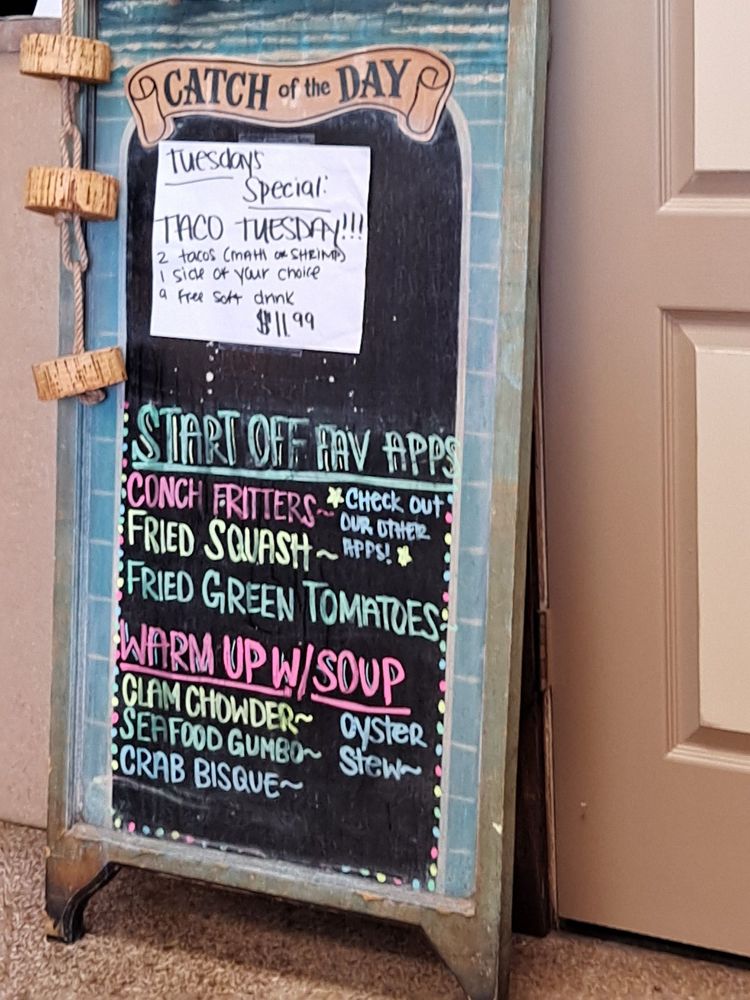 CATCH of the DAY
Tuesdays
Special:
TACO TUESDAY!!!
2 tacos (MAHI or SHRIMP)
1 side of your choice
a free soft drink
$11.99
START OFF FAV APPS
CONCH FRITTERS~
FRIED SQUASH~
CHECK OUT
OUR OTHER
APPS!
FRIED GREEN TOMATOES~
WARM UP W/SOUP
CLAM CHOWDER~
SEAFOOD GUMBO~
CRAB BISQUE~
OYSTER
STEW~